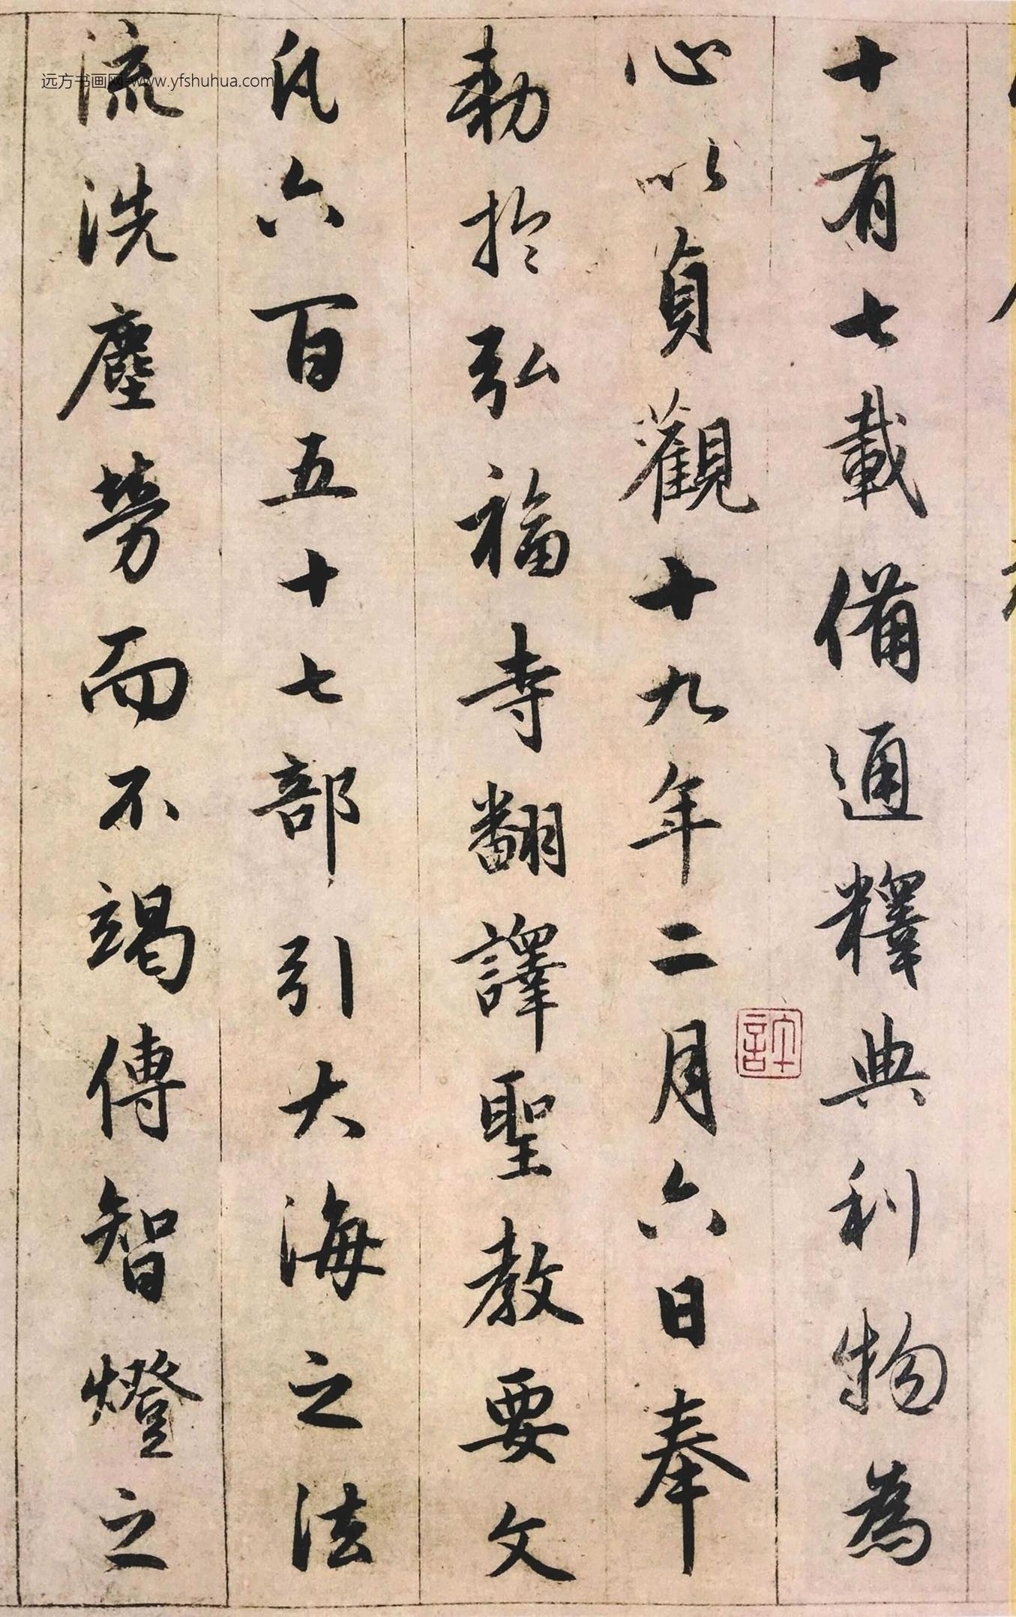 十有七載備通釋典利物為
心以貞觀十九年二月六日奉
勅於弘福寺翻譯聖教要文
凡六百五十七部引大海之法
流洗塵勞而不竭傳智燈之
远方书画网 www.yfshuhua.com